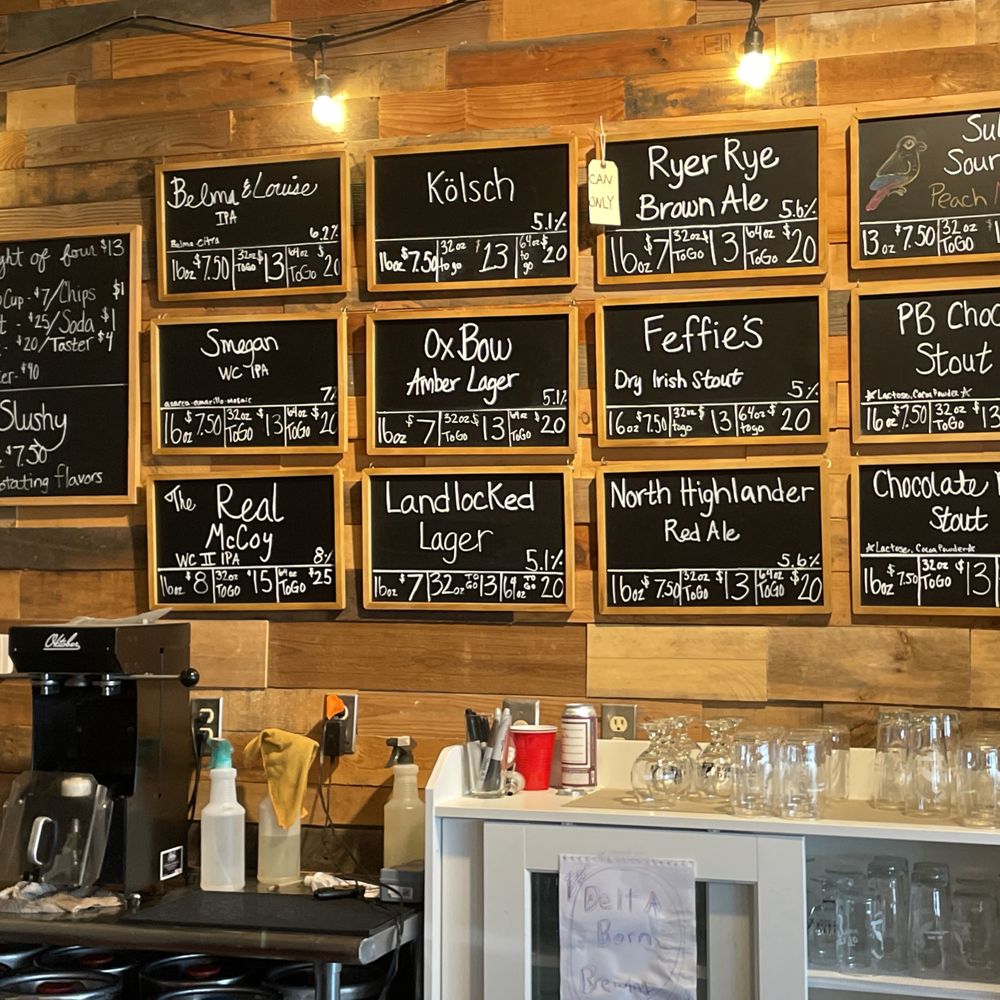 ght of four $13
Cup - $7/Chips $1
$25/Soda $1
$20/Taster $4
er - $40
Slushy
$7.50
otating flavors
Belma & Louise
IPA
6.2%
Belma Citra
16oz $7.50 32oz ToGo $13 64oz ToGo $20
Kölsch
5.1%
16oz $7.50 32oz to go $13 64oz to go $20
CAN ONLY
Ryer Rye
Brown Ale 5.6%
16oz $7 32oz ToGo $13 64oz ToGo $20
Su
Sour
Peach
13oz $7.50 32oz ToGo $1
Smegan
WC IPA
7%
azacca-amarillo-mosaic
16oz $7.50 32oz ToGo $13 64oz ToGo $20
Ox Bow
Amber Lager
5.1%
16oz $7 32oz ToGo $13 64oz ToGo $20
Feffie's
Dry Irish Stout 5%
16oz $7.50 32oz togo $13 64oz togo $20
PB Choc
Stout
*Lactose, Cocoa Powder*
16oz $7.50 32oz ToGo $13
The Real
McCoy
WC II IPA 8%
16oz $8 32oz ToGo $15 64oz ToGo $25
Landlocked
Lager
5.1%
16oz $7 32oz TOGO 13 64oz TOGO 20
North Highlander
Red Ale
5.6%
16oz $7.50 32oz ToGo $13 64oz ToGo $20
Chocolate
Stout
*Lactose, Cocoa Powder*
16oz $7.50 32oz ToGo $13
Oktober
Delta
Born
Brewing